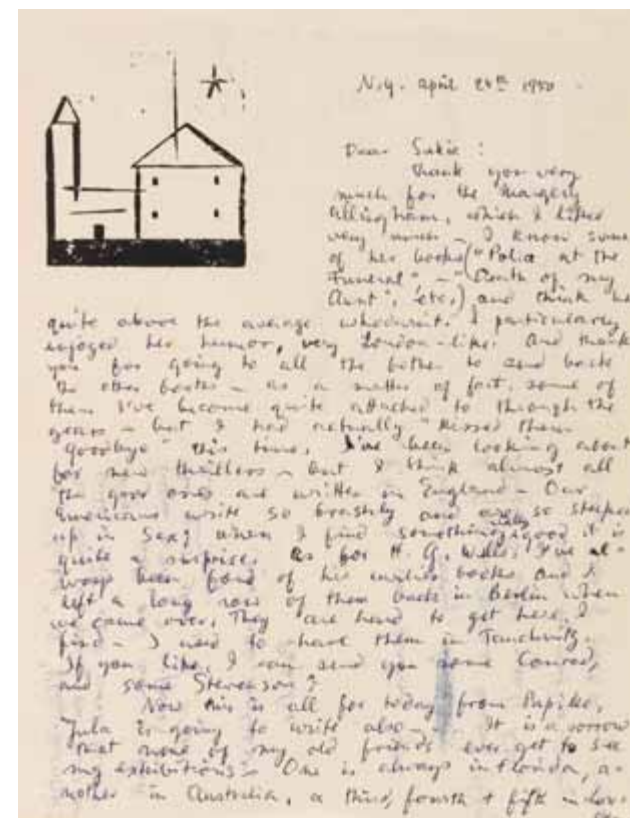 N.Y. april 24th 1950
Dear Sukie:
Thank you very
much for the Margery
Allingham, which I liked
very much – I know some
of her books ("Police at the
Funeral" – "Death of my
Aunt", etc.) and think her
quite above the average whodunit. I particularly
enjoyed her humor, very London-like. And thank
you for going to all the bother to send back
the other books – as a matter of fact, some of
them I've become quite attached to through the
years – but I had actually "kissed them
goodbye" this time. I've been looking about
for new thrillers – but I think almost all
the good ones are written in England – Our
Americans write so beastly and are so steeped
up in Sex; when I find something really good it is
quite a surprise. As for H. G. Wells, I've al-
ways been fond of his earlier books and I
left a long row of them back in Berlin when
we came over. They are hard to get here, I
find – I used to have them in Tauchnitz.
If you like, I can send you some Conrad,
and some Stevenson?
Now this is all for today from Papileo,
Jula is going to write also – It is a sorrow
that none of my old friends ever get to see
my exhibitions – One is always in Florida, a-
nother in Australia, a third, fourth + fifth in